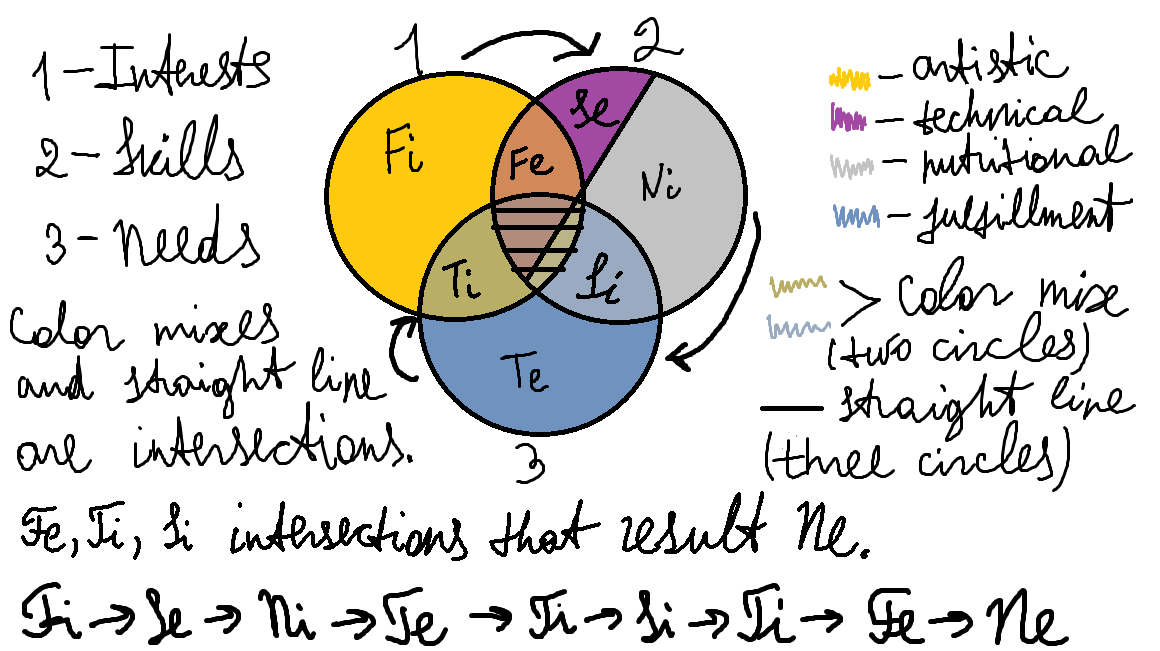 1 - Interests
2 - Skills
3 - Needs
Color mixes
and straight line
are intersections.
1
2
Fi
Se
Fe
Ni
Ti
Si
Te
3
- artistic
- technical
- nutritional
- fulfillment
> Color mix
(two circles)
— straight line
(three circles)
Fe, Ti, Si intersections that result Ne.
Fi → Se → Ni → Te → Ti → Si → Ti → Fe → Ne